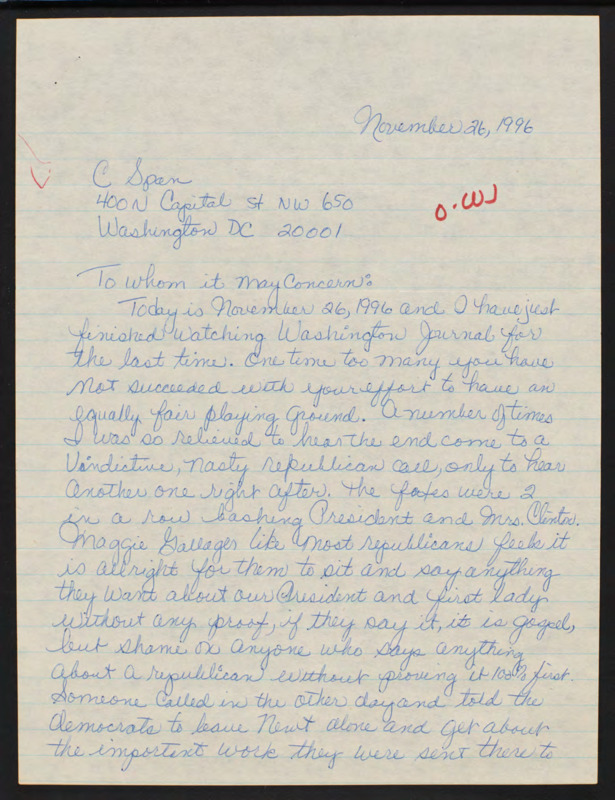 November 26, 1996
C Span
400 N Capital St NW 650
Washington DC 20001
O.W
To whom it may Concern:
Today is November 26, 1996 and I have just
finished watching Washington Journal for
the last time. One time too many you have
not succeeded with your effort to have an
equally fair playing ground. A number of times
I was so relieved to hear the end come to a
Vindictive, nasty republican call, only to hear
another one right after. The faxes were 2
in a row bashing President and Mrs. Clinton.
Maggie Gallager like most republicans feels it
is allright for them to sit and say anything
they want about our President and first lady
without any proof, if they say it, it is gospel,
but shame on anyone who says anything
about a republican without proving it 100% first.
Someone called in the other day and told the
democrats to leave Newt alone and get about
the important work they were sent there to